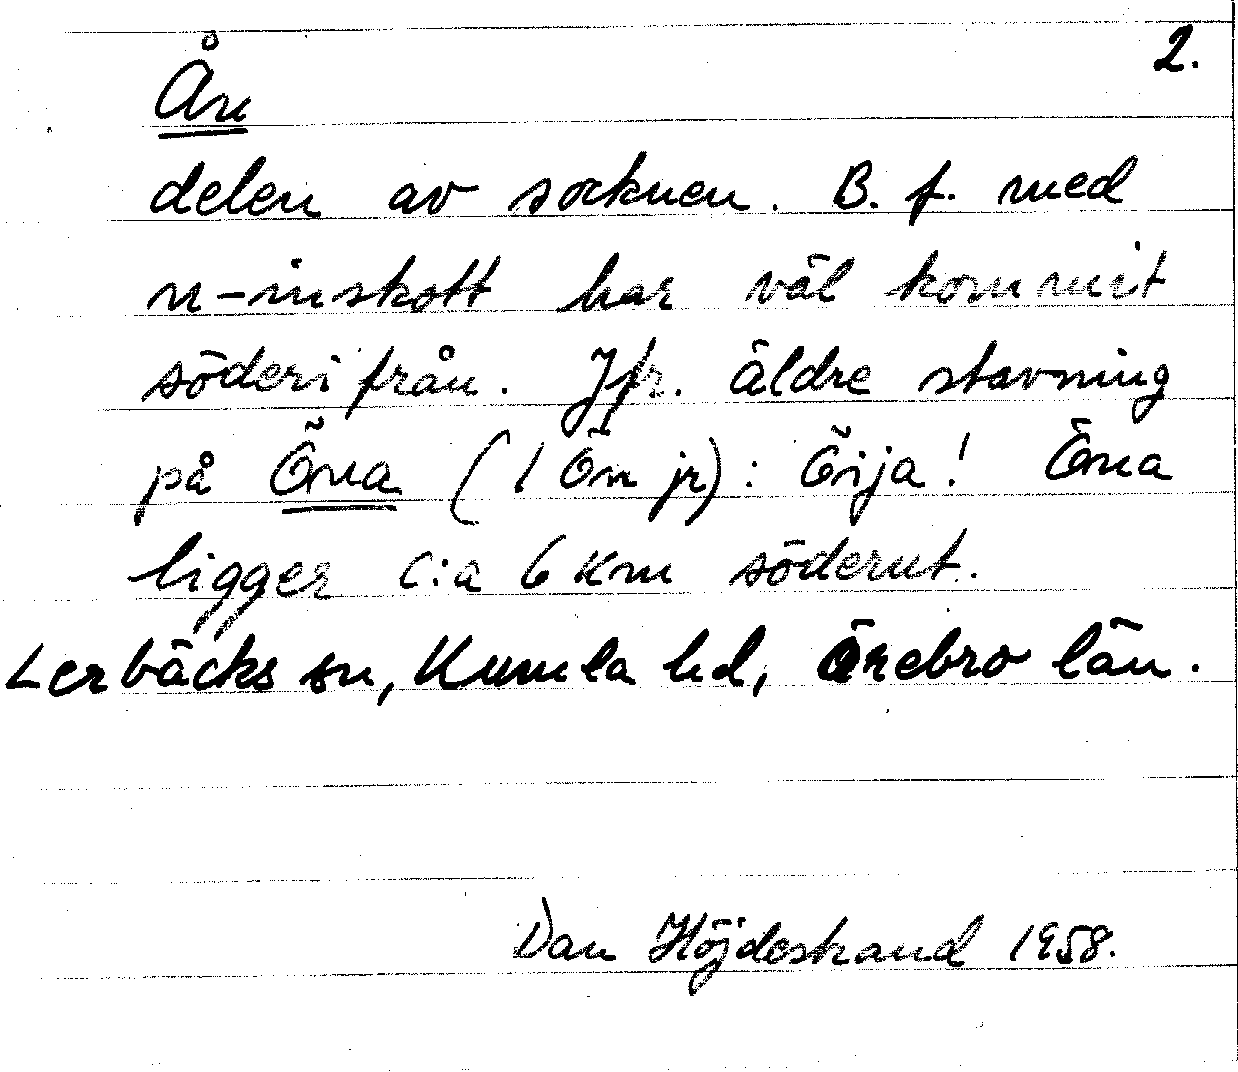 2.
Ån
delen av socknen. B. f. med
n-inskott har väl kommit
söderifrån. Jfr. äldre stavning
på Öna (1 Ön jr): Öija! Öna
ligger c:a 6 km söderut.
Lerbäcks sn, Kumla hd, Örebro län.
Dan Höjdestrand 1958.